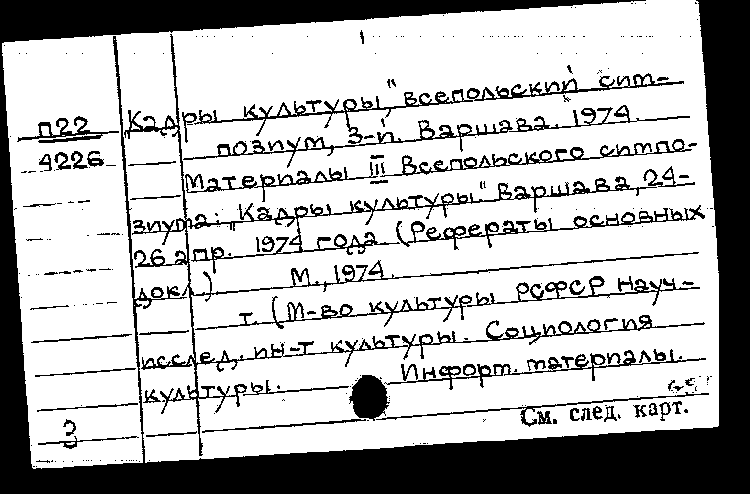 П22
4226
Кадры культуры", всепольский сим-
позиум, 3-й. Варшава. 1974.
Материалы III Всепольского симпо-
зиума: "Кадры культуры." Варшава, 24-
26 апр. 1974 года. (Рефераты основных
докл.). М., 1974.
т. (М-во культуры РСФСР. Науч.-
исслед. ин-т культуры. Социология
культуры. Информ. материалы.
3
См. след. карт.